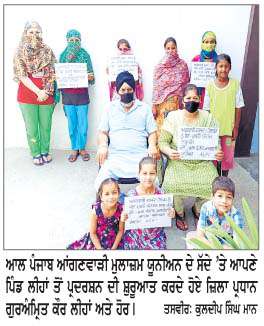 ਆਲ ਪੰਜਾਬ ਆਂਗਣਵਾੜੀ ਮੁਲਾਜ਼ਮ ਯੂਨੀਅਨ ਦੇ ਸੱਦੇ 'ਤੇ ਆਪਣੇ
ਪਿੰਡ ਲੀਹਾਂ ਤੋਂ ਪ੍ਰਦਰਸ਼ਨ ਦੀ ਸ਼ੁਰੂਆਤ ਕਰਦੇ ਹੋਏ ਜ਼ਿਲਾ ਪ੍ਰਧਾਨ
ਗੁਰਅੰਮ੍ਰਿਤ ਕੌਰ ਲੀਹਾਂ ਅਤੇ ਹੋਰ। ਤਸਵੀਰ: ਕੁਲਦੀਪ ਸਿੰਘ ਮਾਨ